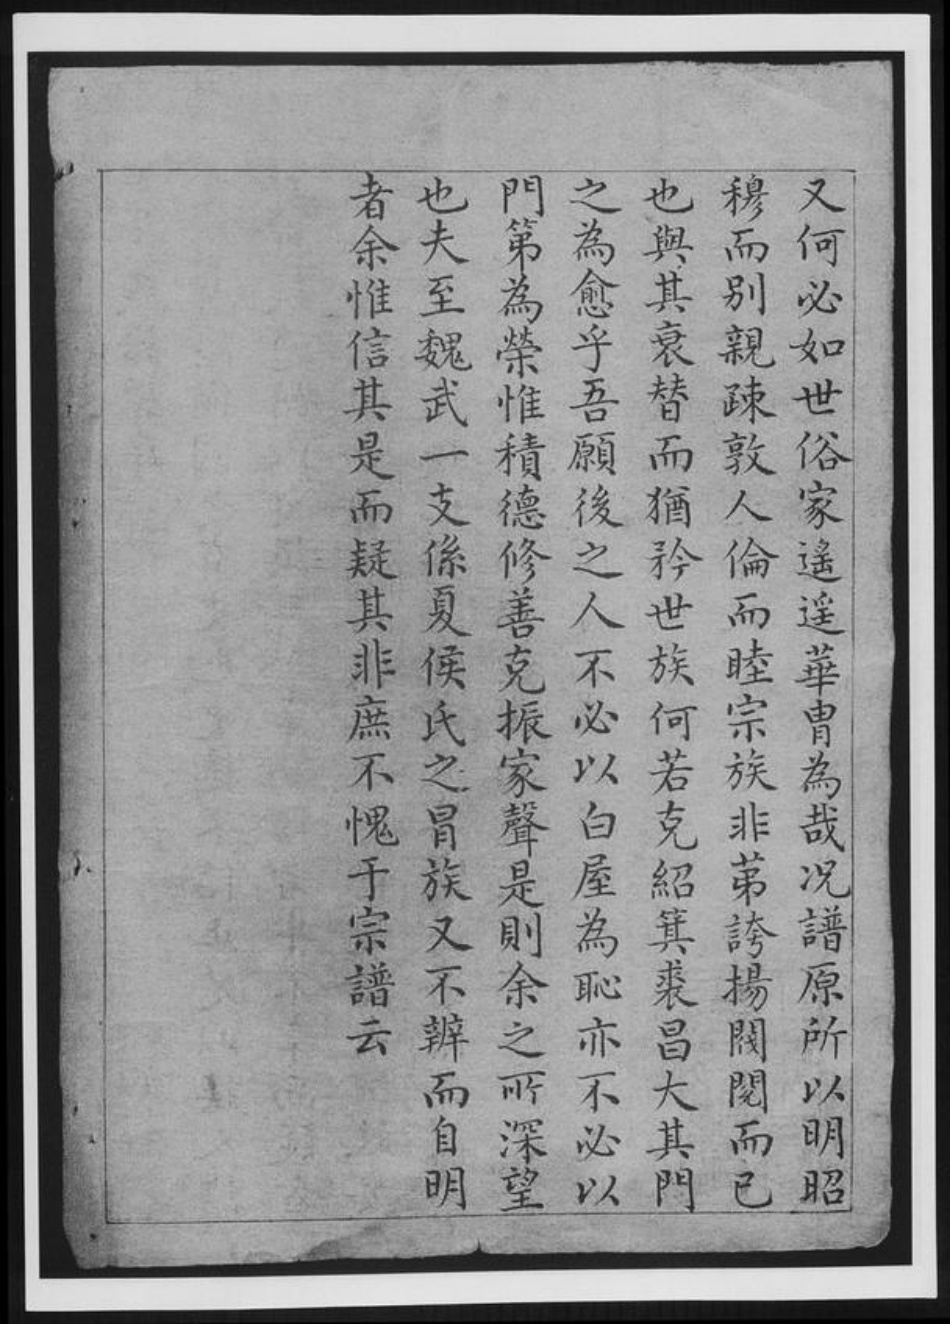 又何必如世俗家遙遥華胄為哉况譜原所以明昭
穆而別親疎敦人倫而睦宗族非苐誇揚閥閱而已
也與其衰替而猶矜世族何若克紹箕裘昌大其門
之為愈乎吾願後之人不必以白屋為恥亦不必以
門第為榮惟積德修善克振家聲是則余之所深望
也夫至魏武一支係夏侯氏之冒族又不辨而自明
者余惟信其是而疑其非庶不愧于宗譜云